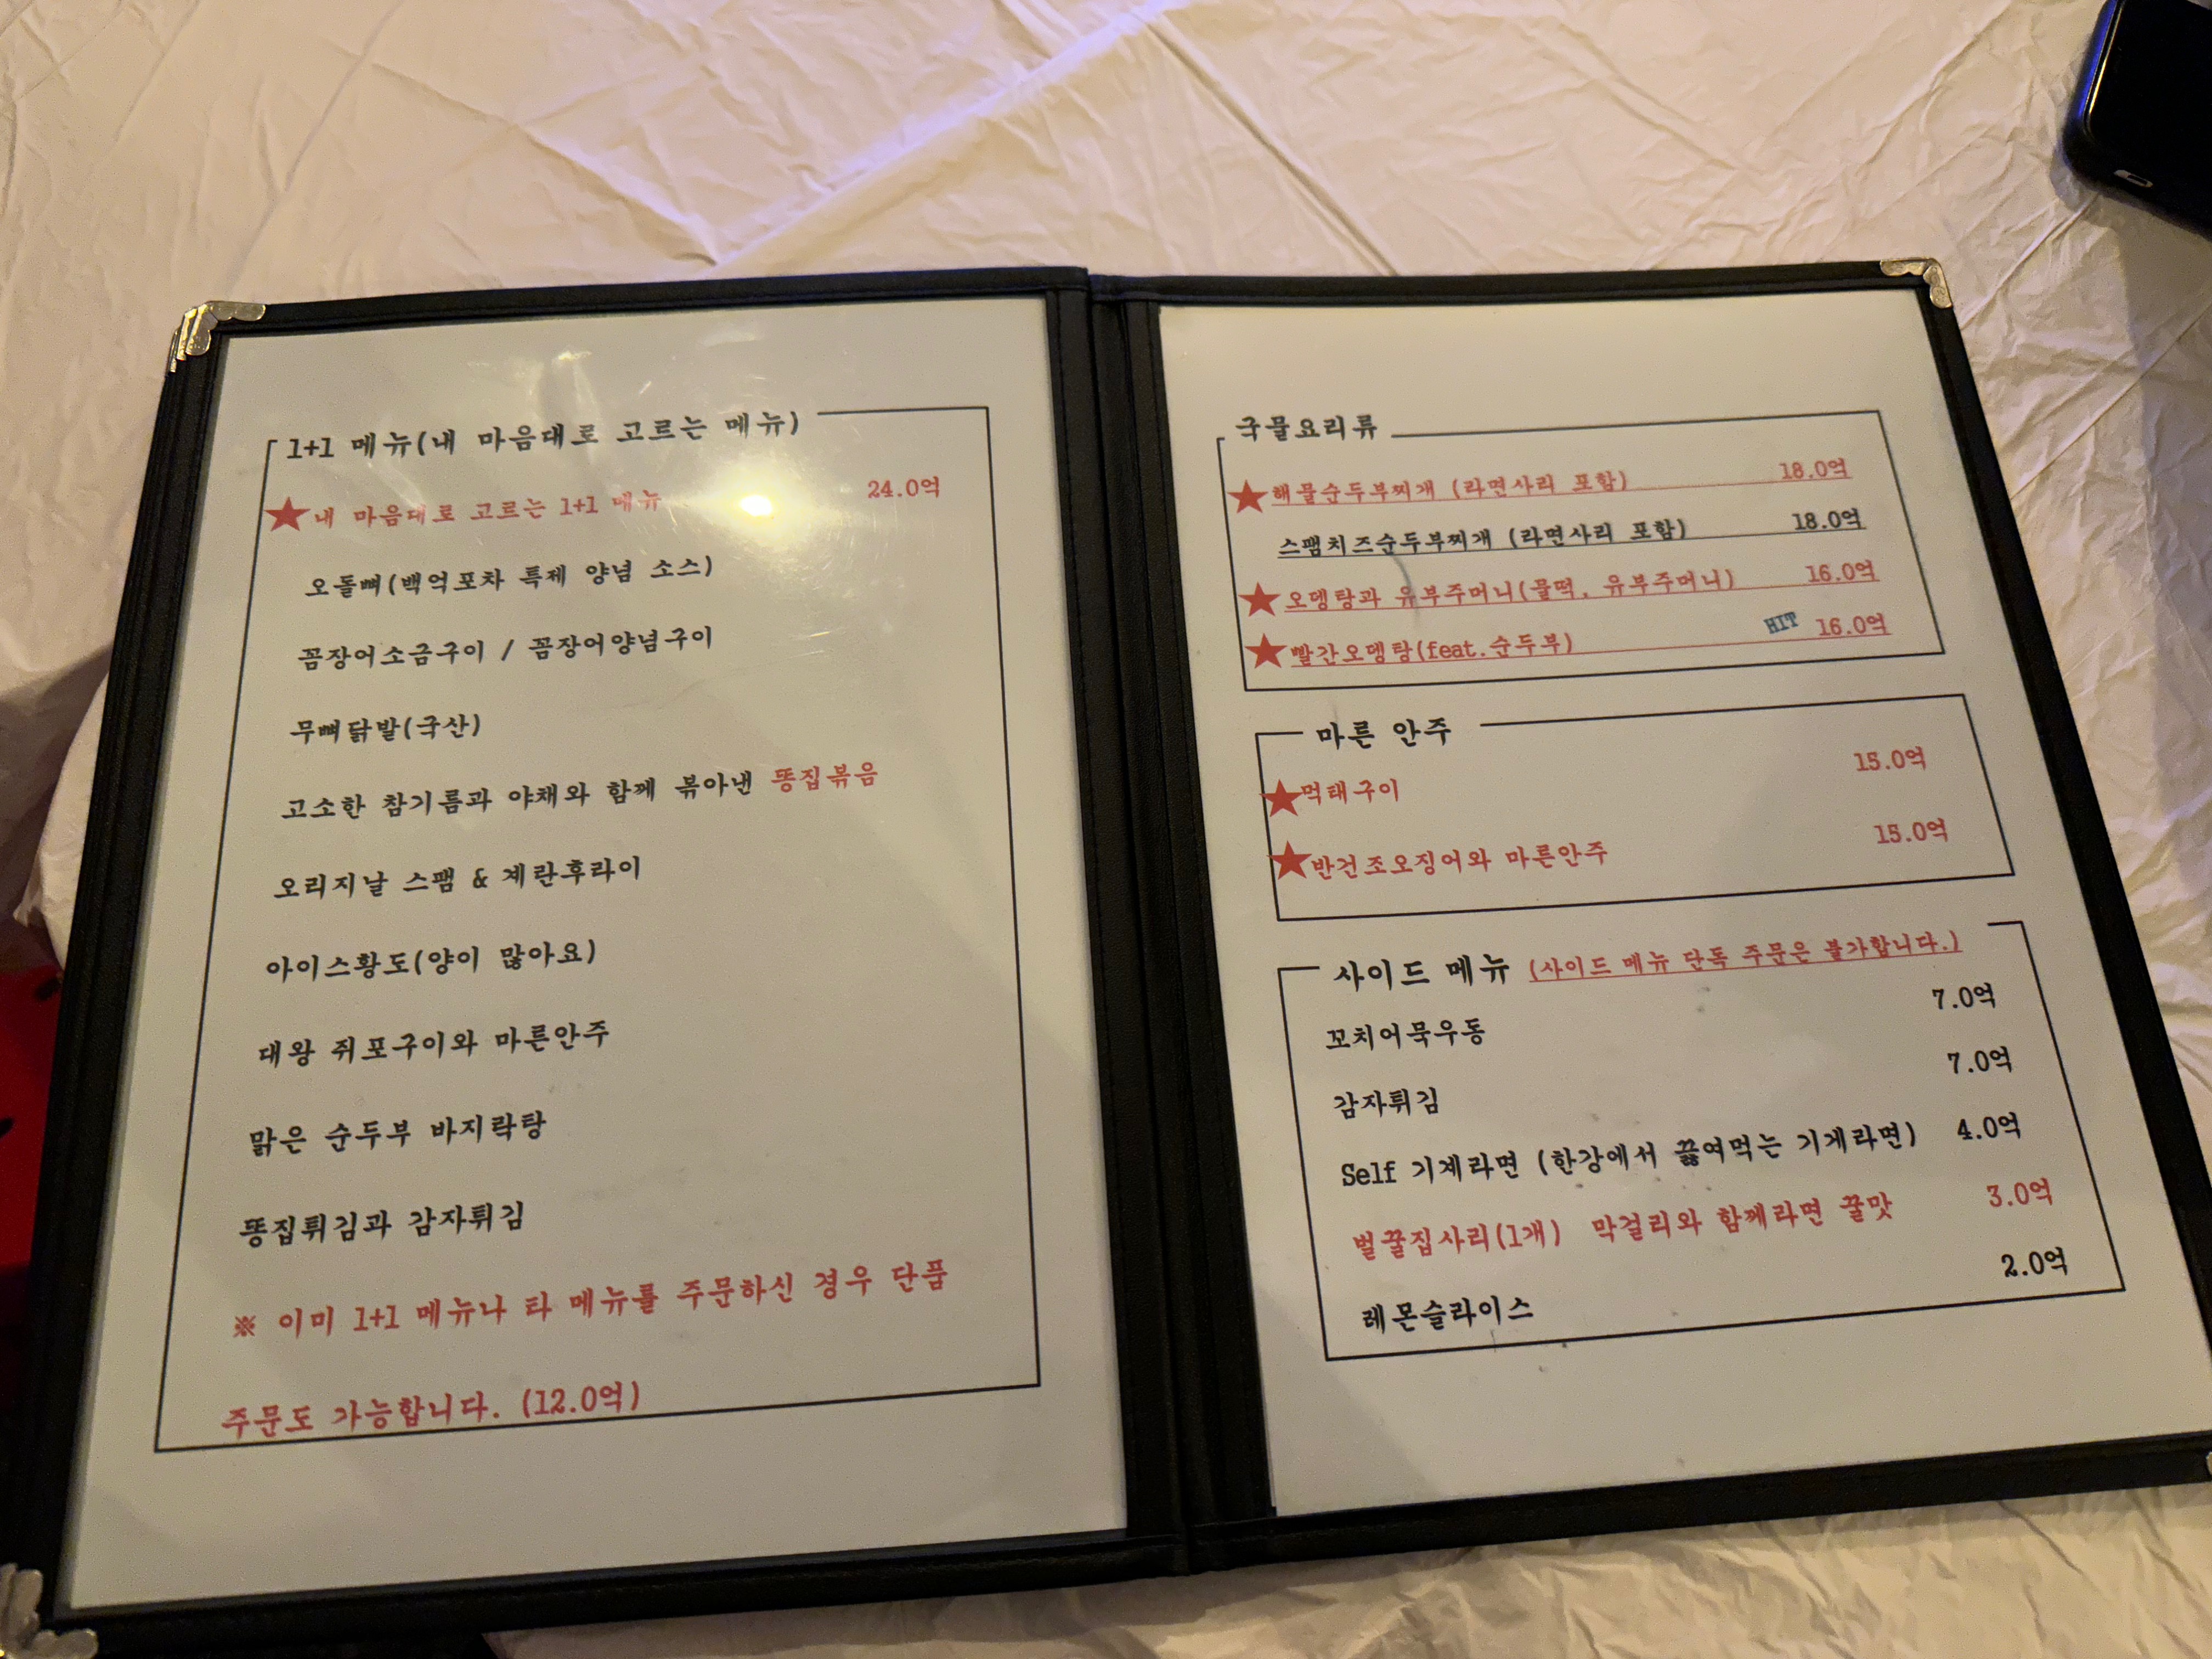 1+1 메뉴(내 마음대로 고르는 메뉴)
★내 마음대로 고르는 1+1 메뉴 24.0억
오돌뼈(백억포차 특제 양념 소스)
꼼장어소금구이 / 꼼장어양념구이
무뼈닭발(국산)
고소한 참기름과 야채와 함께 볶아낸 똥집볶음
오리지날 스팸 & 계란후라이
아이스황도(양이 많아요)
대왕 쥐포구이와 마른안주
맑은 순두부 바지락탕
똥집튀김과 감자튀김
※ 이미 1+1 메뉴나 타 메뉴를 주문하신 경우 단품
주문도 가능합니다. (12.0억)
국물요리류
★해물순두부찌개 (라면사리 포함) 18.0억
스팸치즈순두부찌개 (라면사리 포함) 18.0억
★오뎅탕과 유부주머니(물떡, 유부주머니) 16.0억
★빨간오뎅탕(feat.순두부) HIT 16.0억
마른 안주
★먹태구이 15.0억
★반건조오징어와 마른안주 15.0억
사이드 메뉴 (사이드 메뉴 단독 주문은 불가합니다.)
꼬치어묵우동 7.0억
감자튀김 7.0억
Self 기계라면 (한강에서 끓여먹는 기계라면) 4.0억
벌꿀집사리(1개) 막걸리와 함께라면 꿀맛 3.0억
레몬슬라이스 2.0억